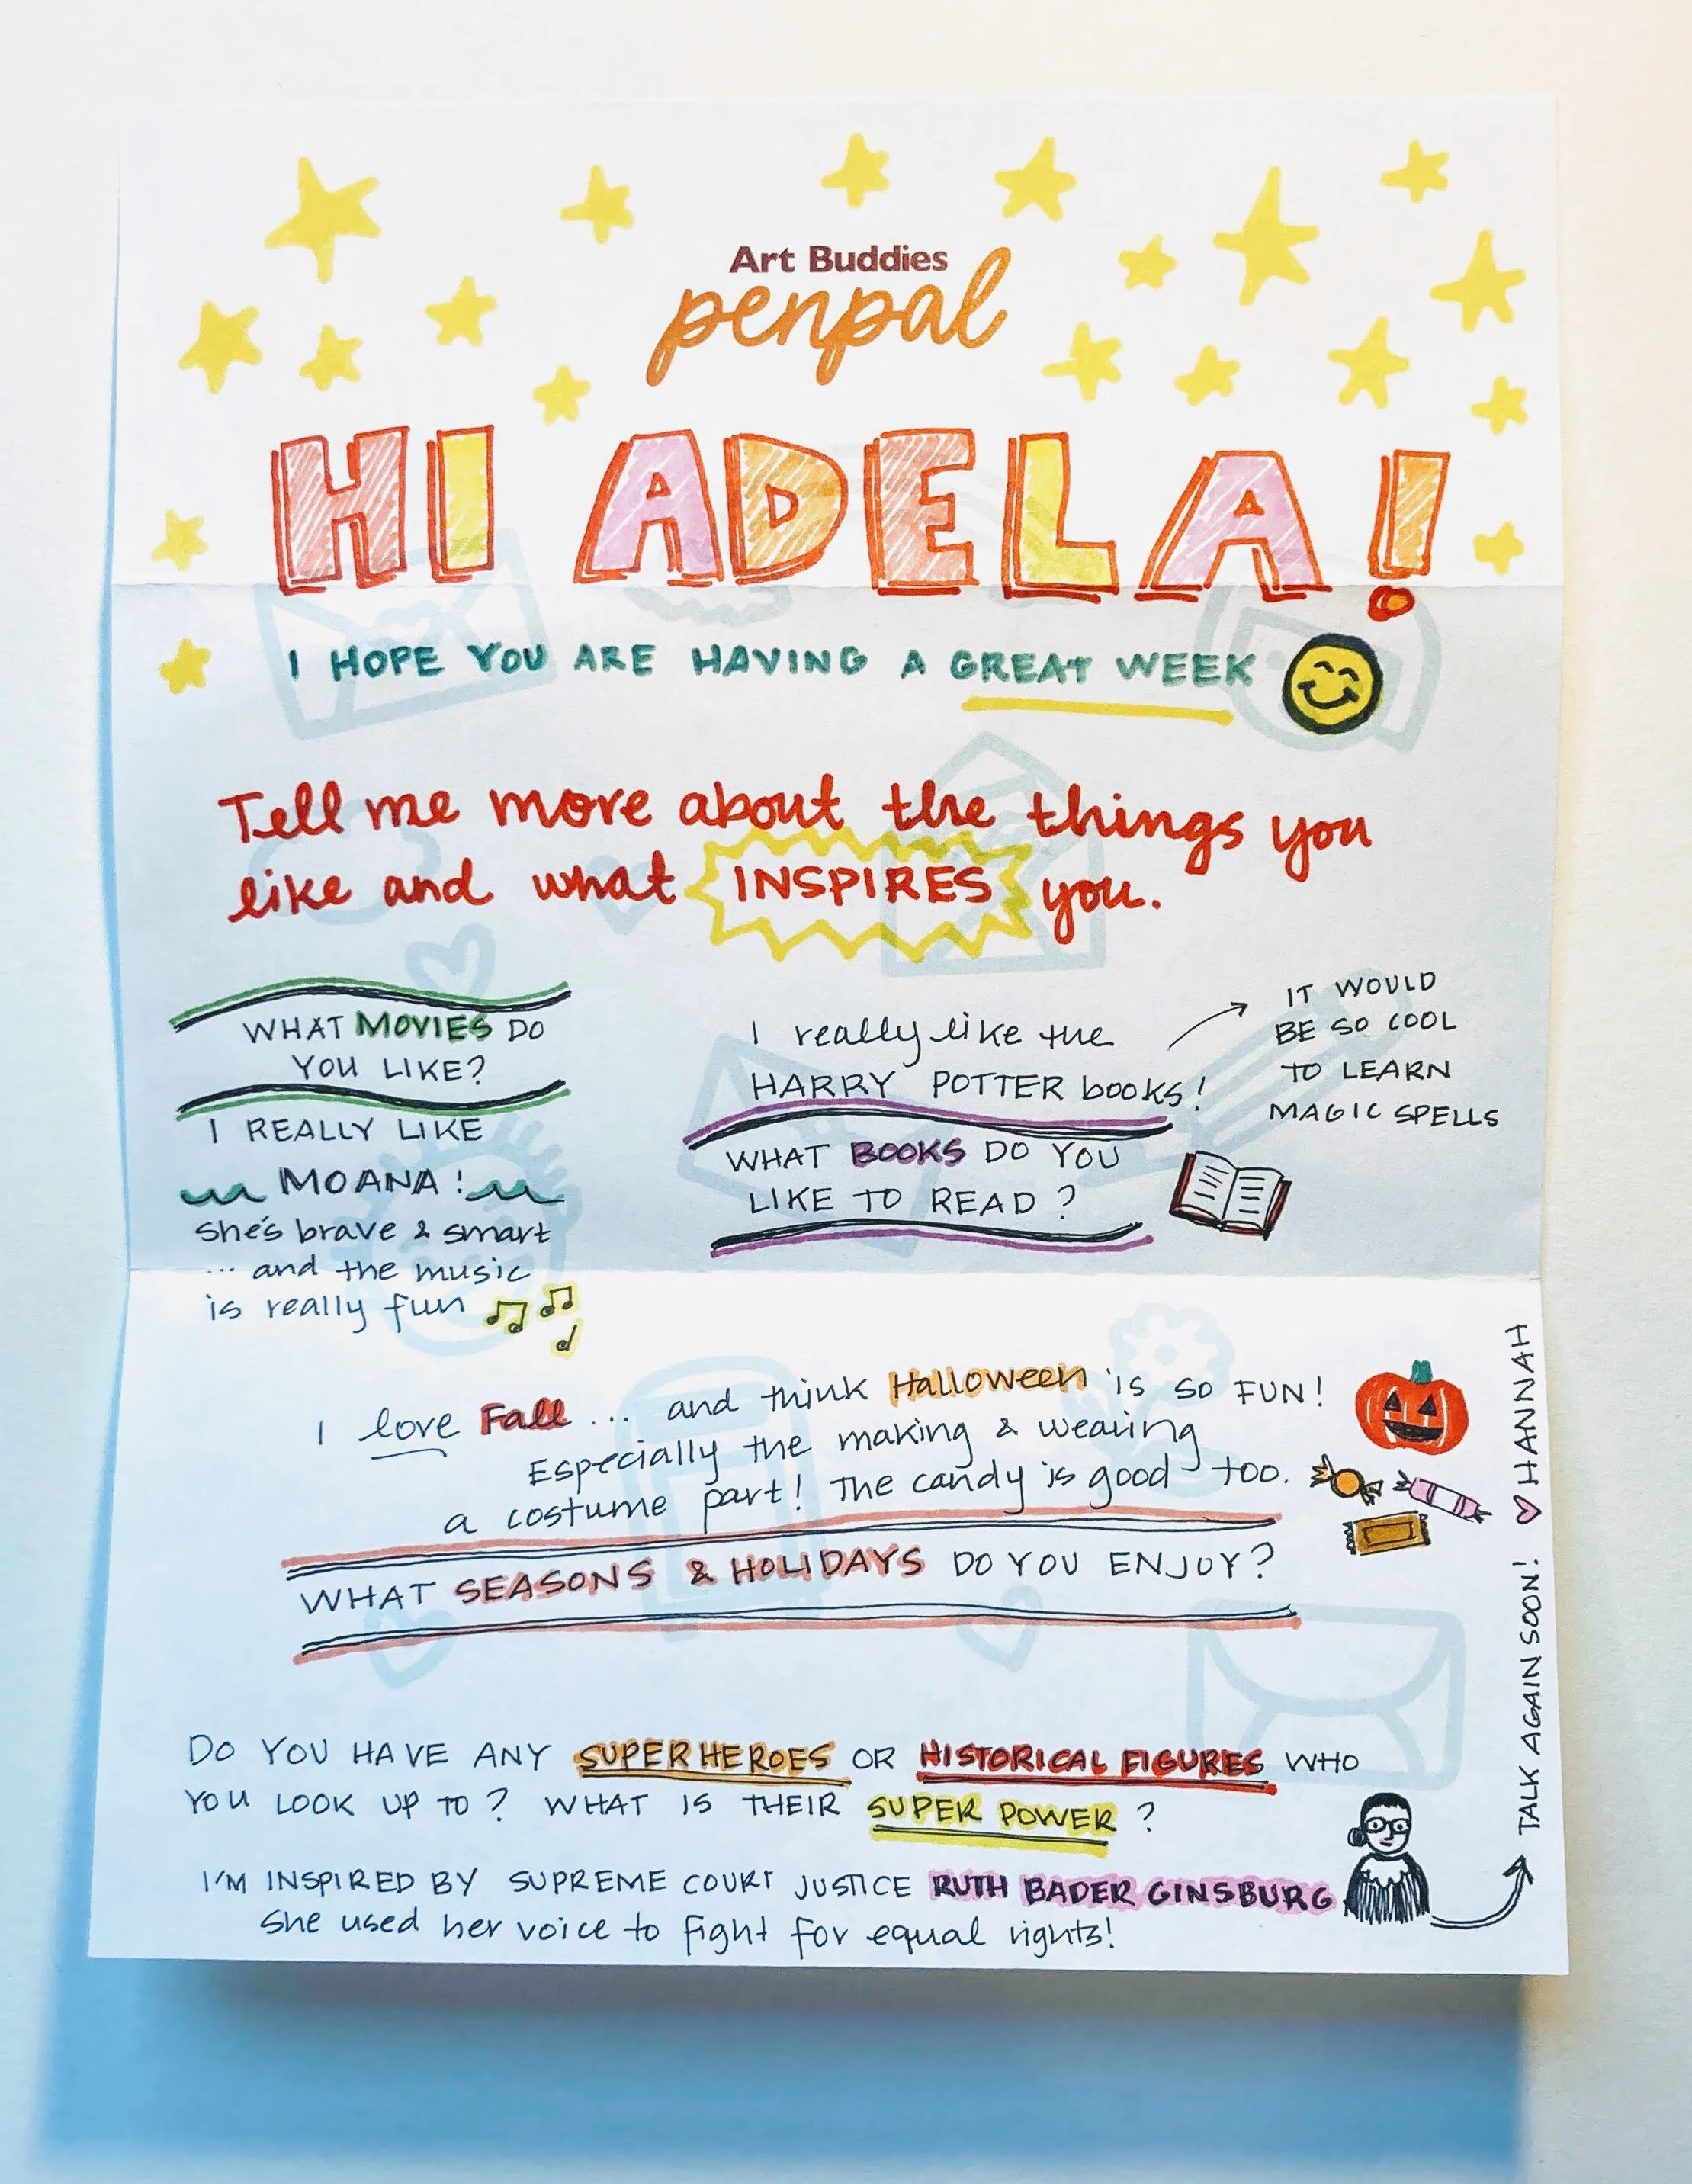 Art Buddies
penpal
HI ADELA!
I HOPE YOU ARE HAVING A GREAT WEEK
Tell me more about the things you
like and what INSPIRES you.
WHAT MOVIES DO
YOU LIKE?
I REALLY LIKE
MOANA!
she's brave & smart
... and the music
is really fun
I really like the
HARRY POTTER books!
IT WOULD
BE SO COOL
TO LEARN
MAGIC SPELLS
WHAT BOOKS DO YOU
LIKE TO READ?
I love Fall ... and think Halloween is so FUN!
Especially the making & wearing
a costume part! The candy is good too.
WHAT SEASONS & HOLIDAYS DO YOU ENJOY?
DO YOU HAVE ANY SUPERHEROES OR HISTORICAL FIGURES WHO
YOU LOOK UP TO? WHAT IS THEIR SUPER POWER?
I'M INSPIRED BY SUPREME COURT JUSTICE RUTH BADER GINSBURG
She used her voice to fight for equal rights!
TALK AGAIN SOON! ♡ HANNAH